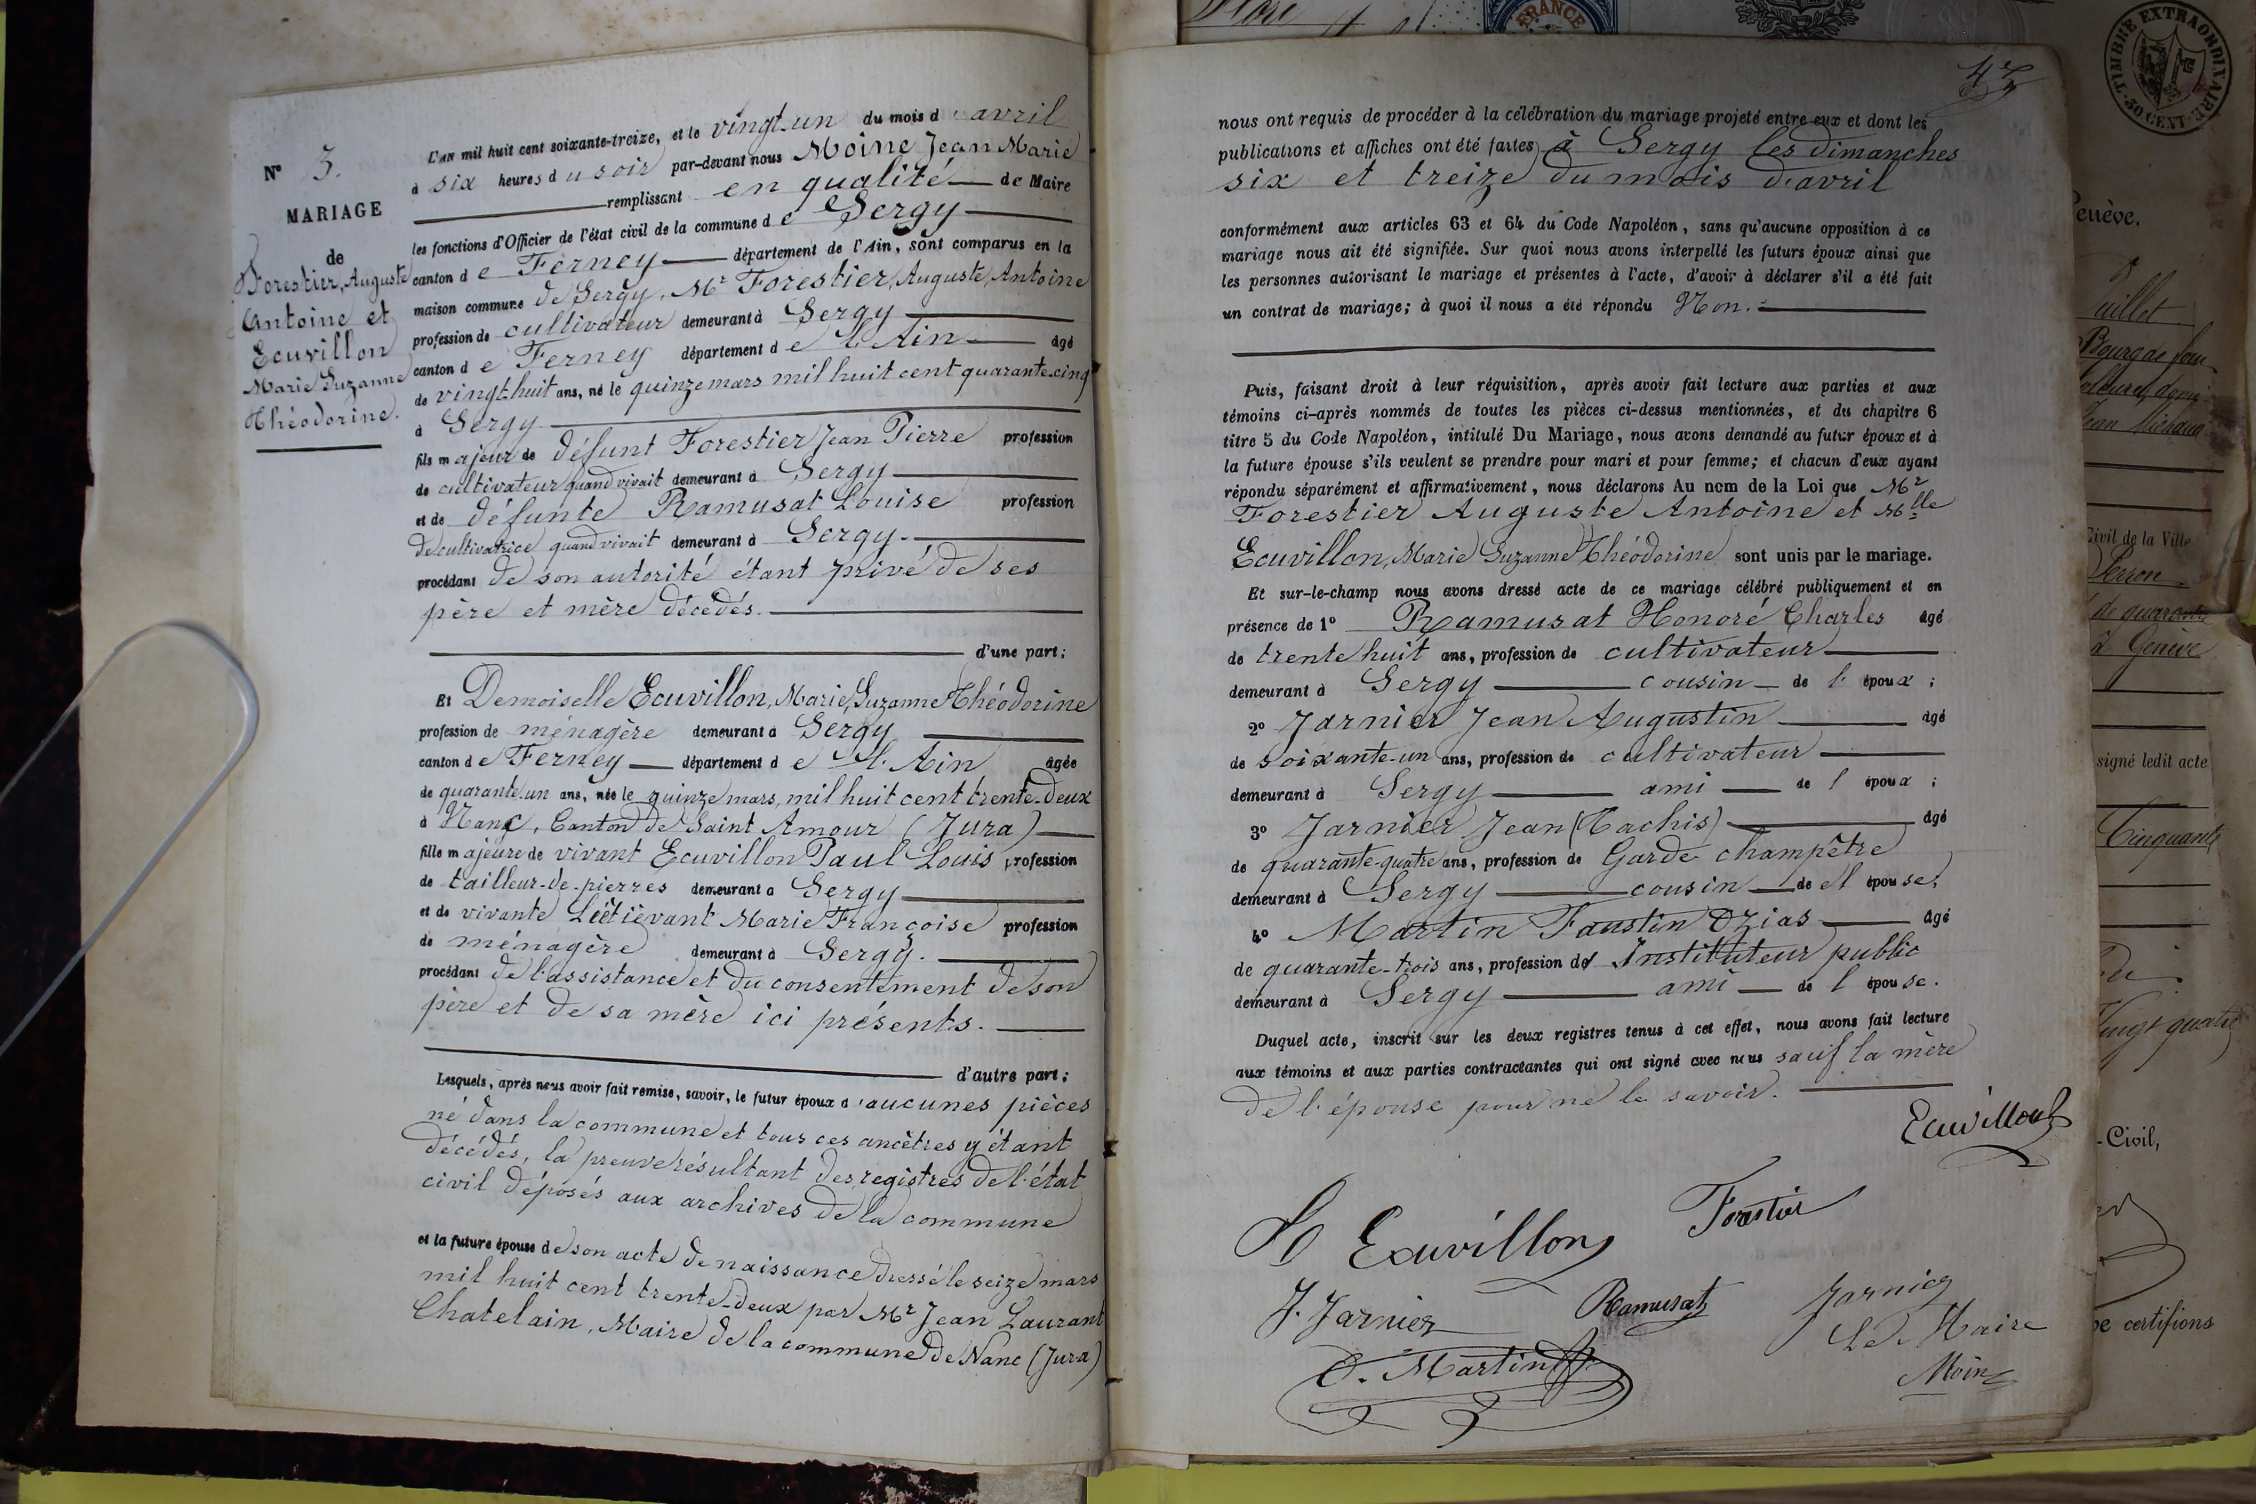 N° 3.
MARIAGE
de
Forestier, Auguste
Antoine et
Ecuvillon
Marie Suzanne
Théodorine.
L'AN mil huit cent soixante-treize, et le vingt-un du mois d'avril
à six heures du soir par-devant nous Moine Jean Marie
remplissant en qualité de Maire
les fonctions d'Officier de l'état civil de la commune de Sergy
canton de Ferney département de l'Ain, sont comparus en la
maison commune de Sergy, Mr Forestier, Auguste, Antoine
profession de cultivateur demeurant à Sergy
canton de Ferney département de l'Ain âgé
de vingt-huit ans, né le quinze mars mil huit cent quarante-cinq
à Sergy
fils majeur de défunt Forestier Jean Pierre profession
de cultivateur quand vivait demeurant à Sergy
et de défunte Ramusat Louise profession
de cultivatrice quand vivait demeurant à Sergy.
procédant de son autorité étant privé de ses
père et mère décédés.
d'une part;
Et Demoiselle Ecuvillon, Marie, Suzanne Théodorine
profession de ménagère demeurant à Sergy
canton de Ferney département de l'Ain âgée
de quarante-un ans, née le quinze mars, mil huit cent trente-deux
à Nanc, Canton de Saint Amour (Jura)
fille majeure de vivant Ecuvillon Paul Louis profession
de tailleur-de-pierres demeurant à Sergy
et de vivante Marie Françoise profession
de ménagère demeurant à Sergy.
procédant de l'assistance et du consentement de son
père et de sa mère ici présents.
d'autre part;
Lesquels, après nous avoir fait remise, savoir, le futur époux d'aucunes pièces
né dans la commune et tous ces ancêtres y étant
décédés, la preuve résultant des registres de l'état
civil déposés aux archives de la commune
et la future épouse de son acte de naissance dressé le seize mars
mil huit cent trente-deux par Mr Jean Laurant
Chatelain, Maire de la commune de Nanc (Jura)
47
nous ont requis de procéder à la célébration du mariage projeté entre eux et dont les
publications et affiches ont été faites à Sergy les dimanches
six et treize du mois d'avril
conformément aux articles 63 et 64 du Code Napoléon, sans qu'aucune opposition à ce
mariage nous ait été signifiée. Sur quoi nous avons interpellé les futurs époux ainsi que
les personnes autorisant le mariage et présentes à l'acte, d'avoir à déclarer s'il a été fait
un contrat de mariage; à quoi il nous a été répondu Non.
Puis, faisant droit à leur réquisition, après avoir fait lecture aux parties et aux
témoins ci-après nommés de toutes les pièces ci-dessus mentionnées, et du chapitre 6
titre 5 du Code Napoléon, intitulé Du Mariage, nous avons demandé au futur époux et à
la future épouse s'ils veulent se prendre pour mari et pour femme; et chacun d'eux ayant
répondu séparément et affirmativement, nous déclarons Au nom de la Loi que Mr
Forestier Auguste Antoine et Mlle
Ecuvillon, Marie Suzanne Théodorine sont unis par le mariage.
Et sur-le-champ nous avons dressé acte de ce mariage célébré publiquement et en
présence de 1° Ramusat Honoré Charles âgé
de trente huit ans, profession de cultivateur
demeurant à Sergy cousin de l'époux;
2° Jarnier Jean Augustin âgé
de soixante-un ans, profession de cultivateur
demeurant à Sergy ami de l'époux;
3° Jarnier Jean (Hachis) âgé
de quarante-quatre ans, profession de Garde champêtre
demeurant à Sergy cousin de l'épouse,
4° Martin Faustin Ozias âgé
de quarante-trois ans, profession d' Instituteur public
demeurant à Sergy ami de l'épouse.
Duquel acte, inscrit sur les deux registres tenus à cet effet, nous avons fait lecture
aux témoins et aux parties contractantes qui ont signé avec nous sauf la mère
de l'épouse pour ne le savoir.
Ecuvillon
Ecuvillon Forestier
J. Jarnier Ramusat Jarnier
Le Maire
O. Martin
Moine
FRANCE
TIMBRE EXTRAORDINAIRE
50 CENT
Genève.
Civil de la Ville
Perron
de quarante
à Genève
signé ledit acte
Cinquante
Vingt quatre
-Civil,
certifions